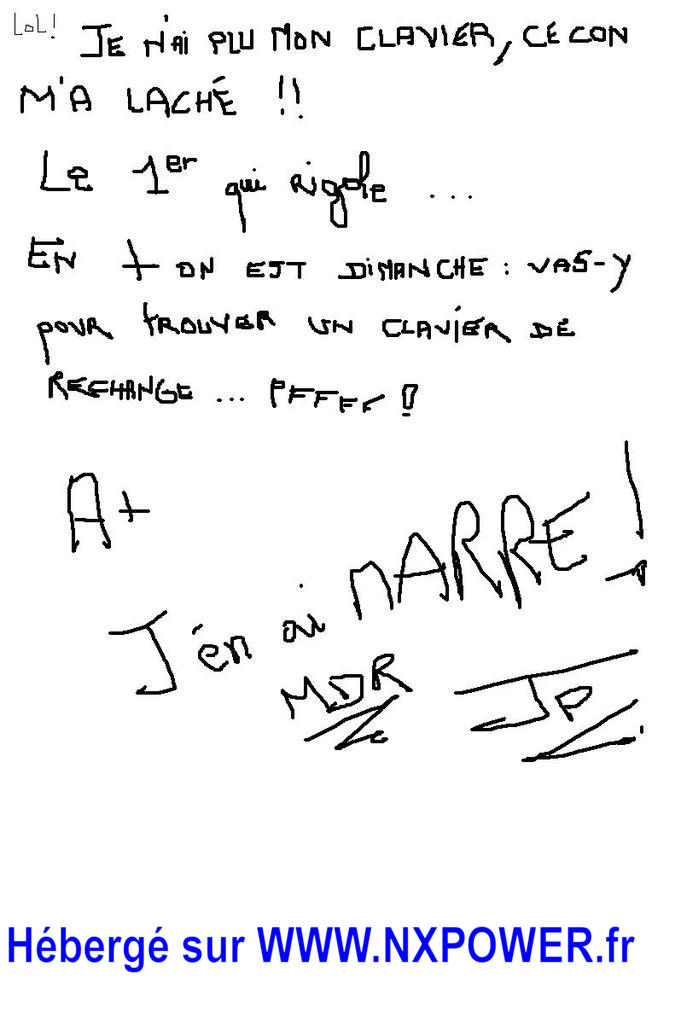 LOL! JE N'Ai PLU MON CLAVIER, CE CON
M'A LACHÉ !!
Le 1er qui Rigole ...
EN + ON EST DiMANCHE : VAS-Y
POUR TROUVER UN CLAVIER DE
RECHANGE ... PFFFFF !
A+
J'en ai MARRE !
MDR JP
Hébergé sur WWW.NXPOWER.fr